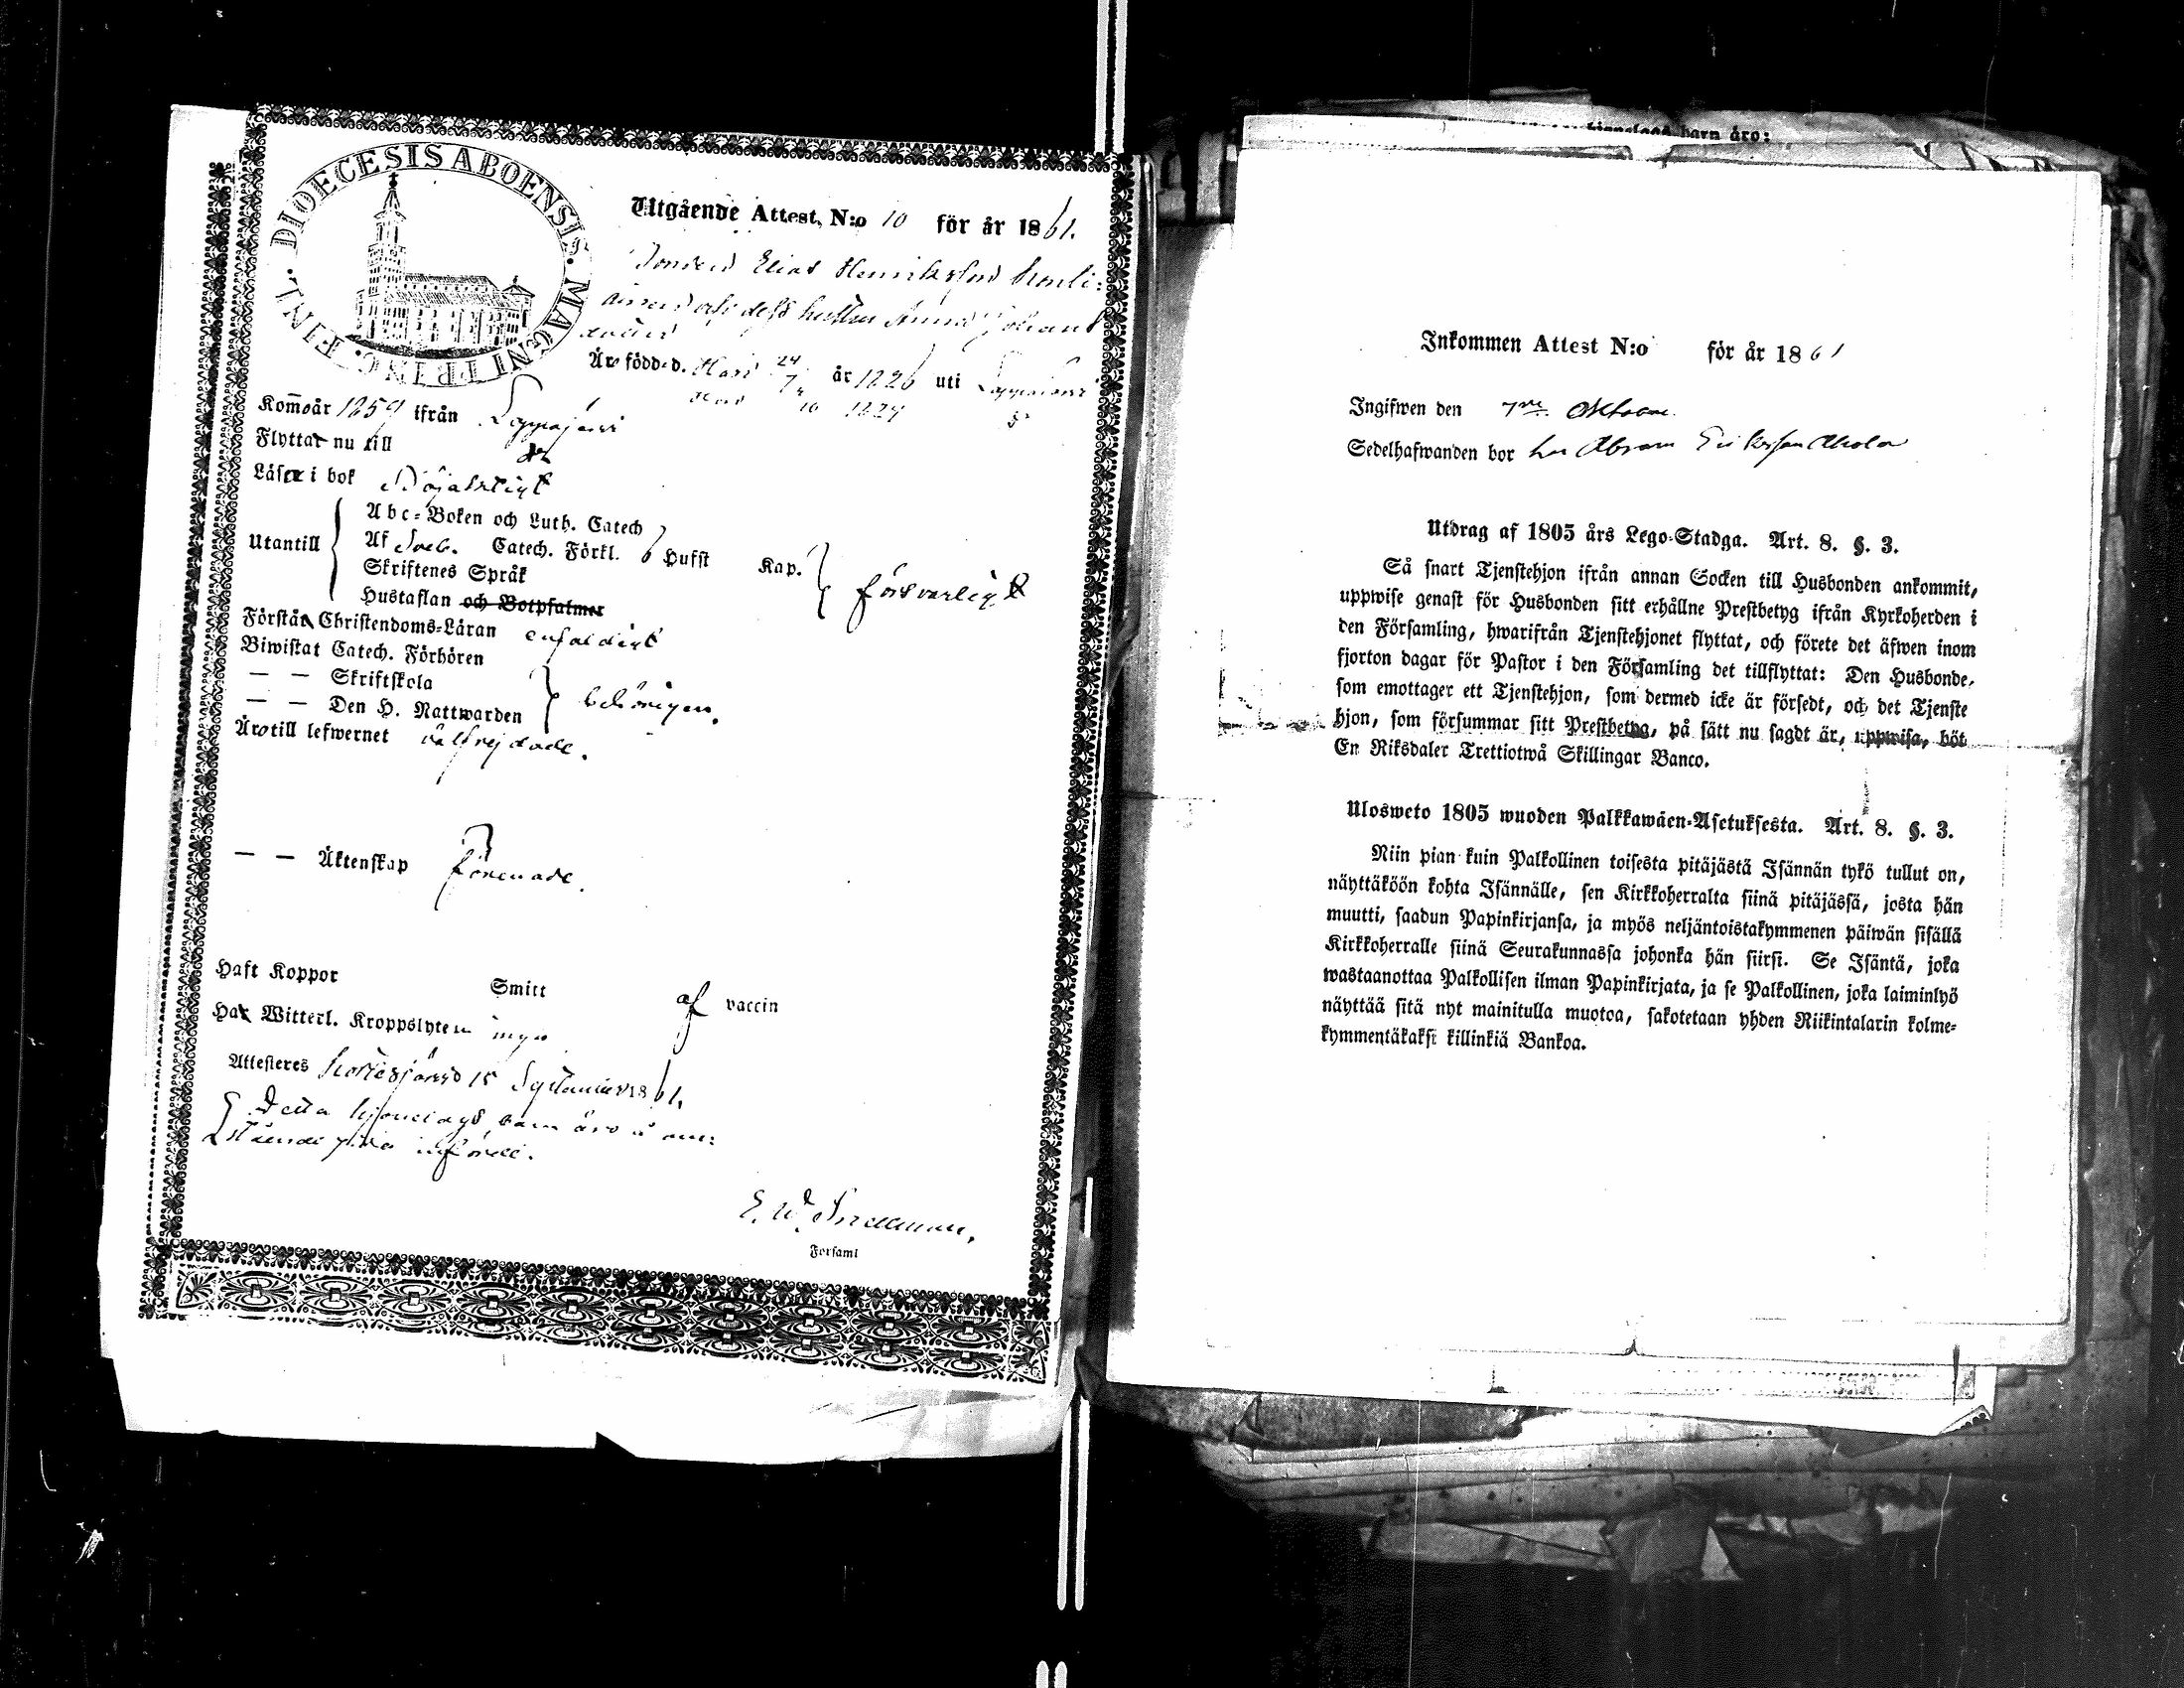 DIOECESIS ABOENSIS. MAGNI PRINC. FINL.
Utgående Attest, N:o 10 för år 1861.
Elias Henriksson
och dess hustru Anna Johans
dotter
Äro födde d. Han 24/7 år 1826 uti Lappajärvi
Hon 10 1824
Kom̅o år 1859 ifrån Lappajärvi
Flytta nu till d:o
Läsa i bok Nöjaktigt
Utantill
Abc-Boken och Luth. Catech
Af Sveb. Catech. Förkl. 6 Hufst Kap.
Skriftenes Språk
Hustaflan och Botpsalmer
försvarligt
Förstå Christendoms-Läran enfaldigt
Biwistat Catech. Förhören
— — Skriftskola
— — Den H. Nattwarden
behörigen.
Äro till lefwernet välfrejdade.
— — Äktenskap förenade.
Haft Koppor Smitt af vaccin
Ha Witterl. Kroppslyten inga
Attesteras Kortesjärvi 15 September 1861.
Detta hjonelags barn äro å om-
stående sida införde.
E. W.
Forsaml
hjonelags barn äro:
Inkommen Attest N:o för år 1861
Ingifwen den 7de Oktober
Sedelhafwanden bor hos Abram Eriksson Ahola
Utdrag af 1805 års Lego-Stadga. Art. 8. §. 3.
Så snart Tjenstehjon ifrån annan Socken till Husbonden ankommit,
uppwise genast för Husbonden sitt erhållne Prestbetyg ifrån Kyrkoherden i
den Församling, hwarifrån Tjenstehjonet flyttat, och förete det äfwen inom
fjorton dagar för Pastor i den Församling det tillflyttat: Den Husbonde,
som emottager ett Tjenstehjon, som dermed icke är försedt, och det Tjenste
hjon, som försummar sitt Prestbetyg, på sätt nu sagdt är, uppwisa, böt
En Riksdaler Trettiotwå Skillingar Banco.
Ulosweto 1805 wuoden Palkkawäen-Asetuksesta. Art. 8. §. 3.
Niin pian kuin Palkollinen toisesta pitäjästä Isännän tykö tullut on,
näyttäköön kohta Isännälle, sen Kirkkoherralta siinä pitäjässä, josta hän
muutti, saadun Papinkirjansa, ja myös neljäntoistakymmenen päiwän sisällä
Kirkkoherralle siinä Seurakunnassa johonka hän siirsi. Se Isäntä, joka
wastaanottaa Palkollisen ilman Papinkirjata, ja se Palkollinen, joka laiminlyö
näyttää sitä nyt mainitulla muotoa, sakotetaan yhden Riikintalarin kolme-
kymmentäkaksi killinkiä Bankoa.